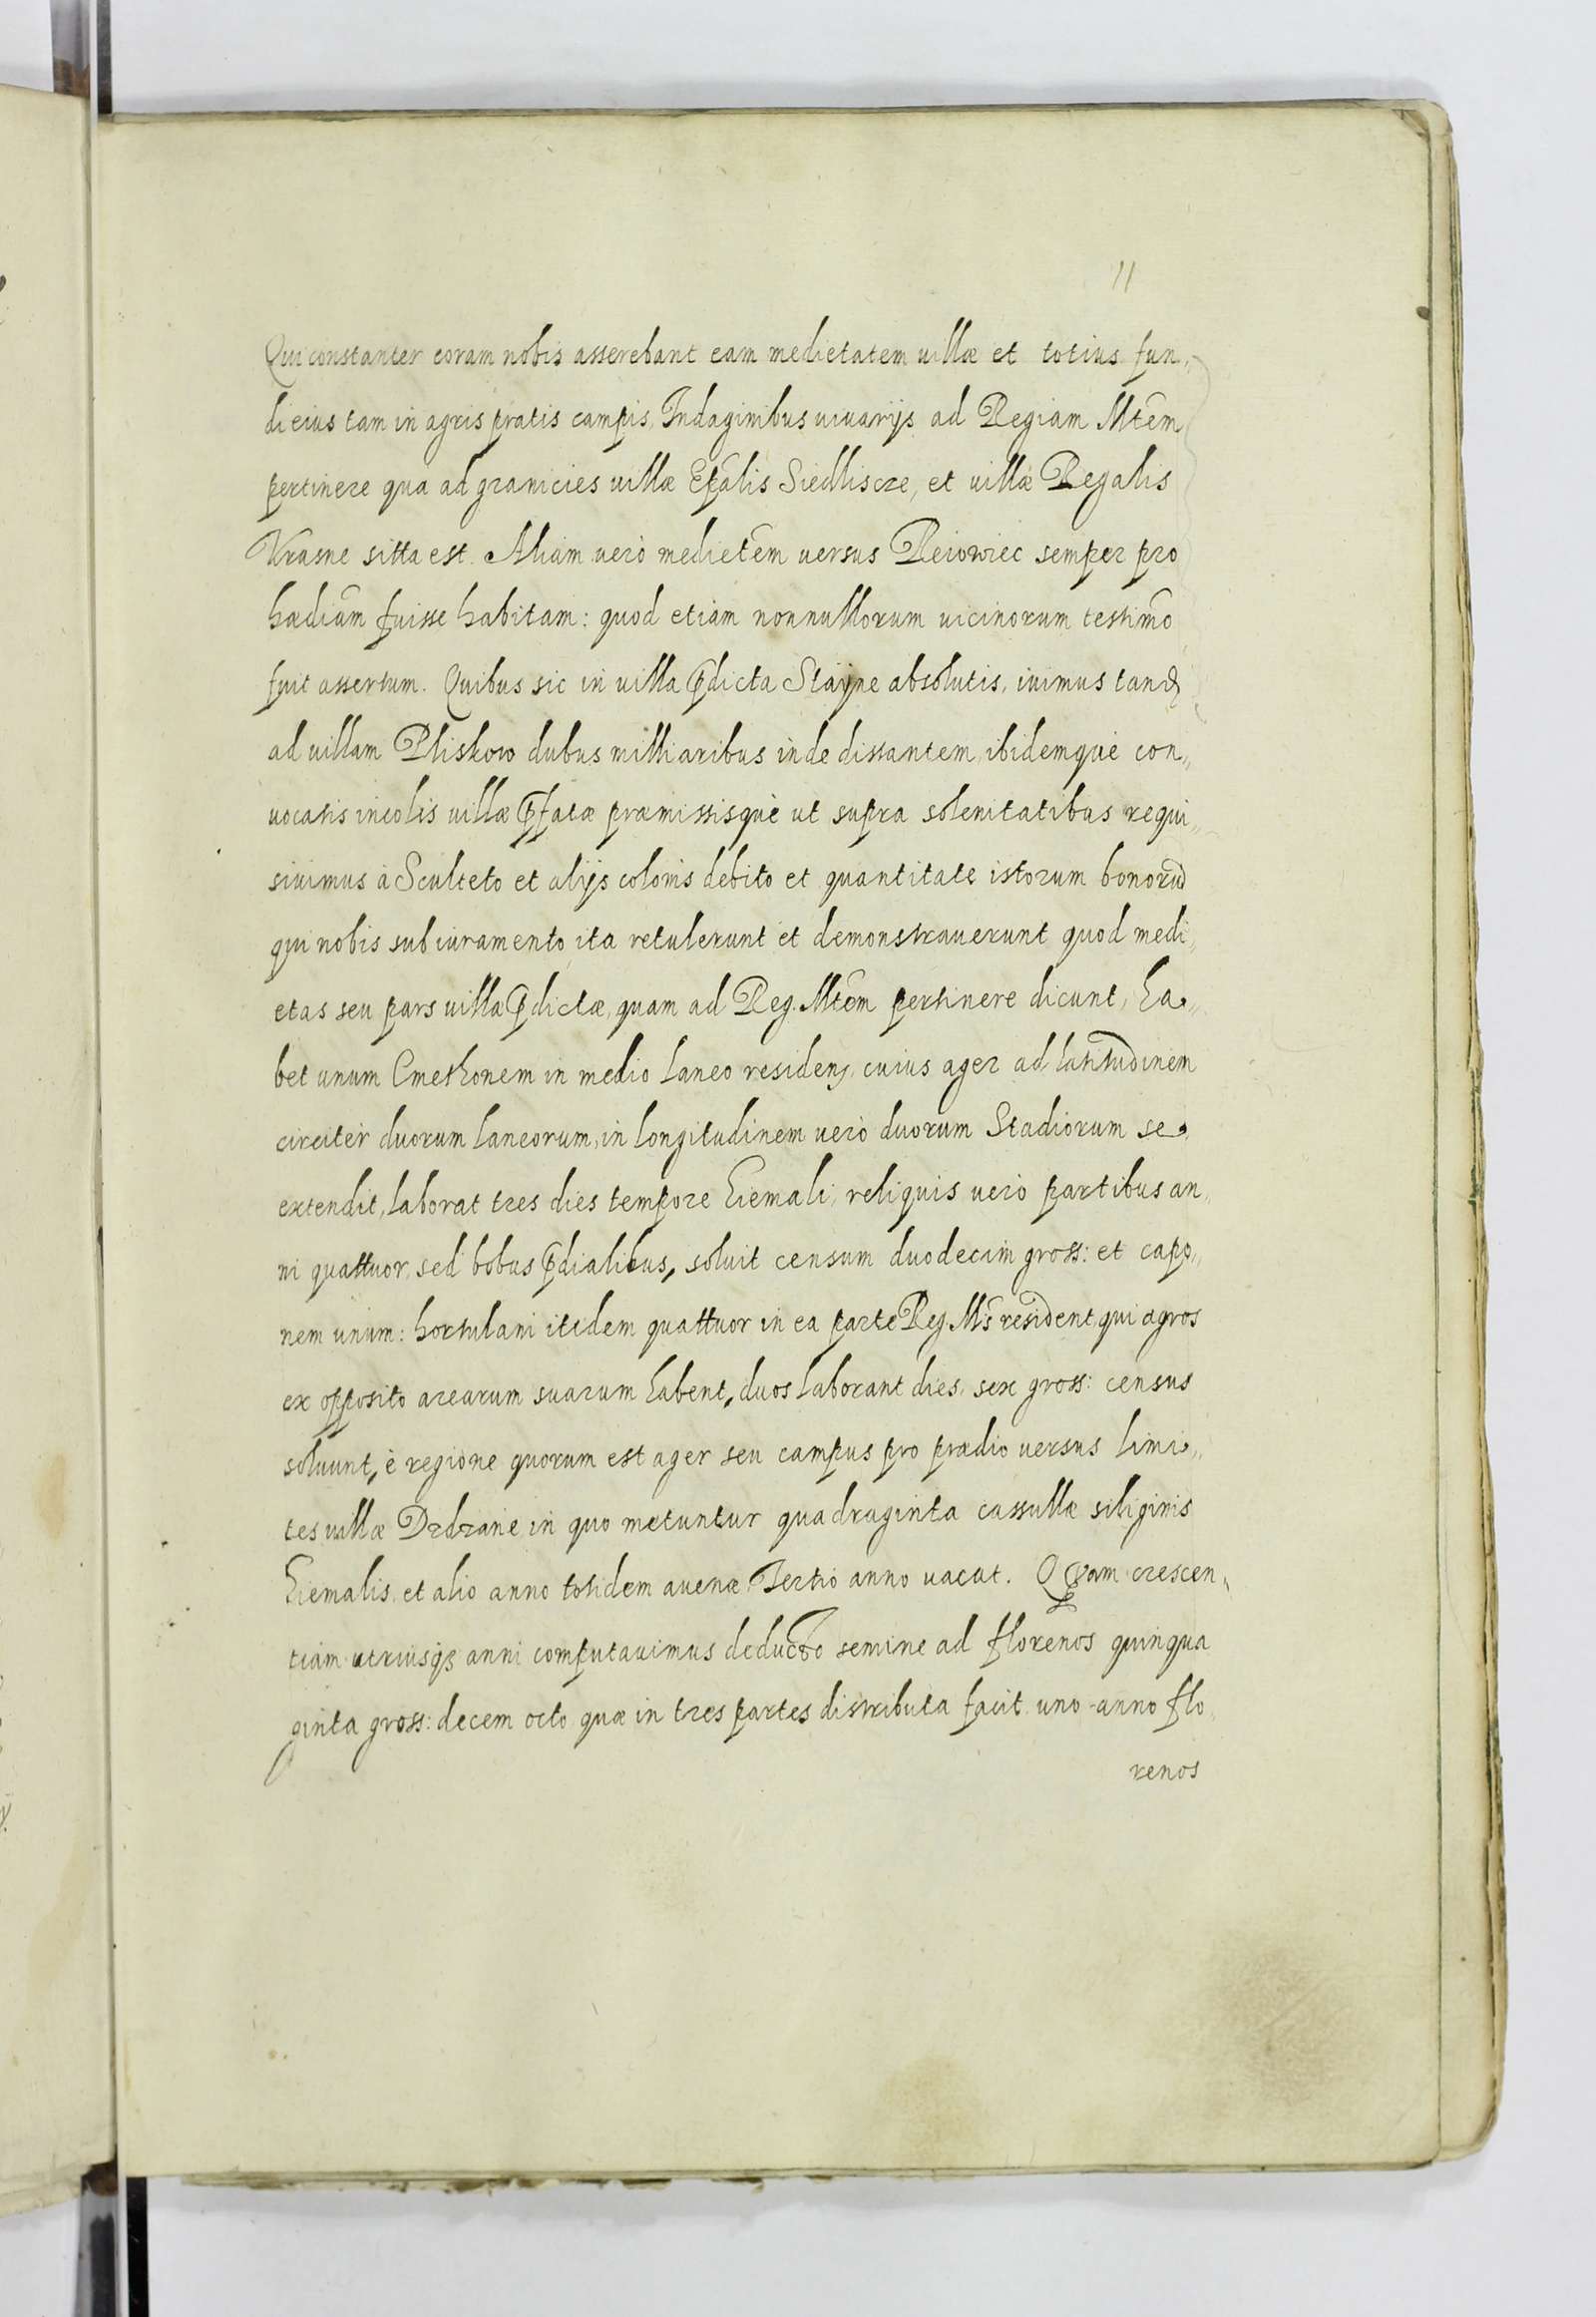 11
Qui constanter coram nobis asserebant eam medietatem uillæ et totius fun„
di eius tam in agris pratis campis, Indaginibus uiuarijs ad Regiam Mtēm
pertinere qua ad granicies uillæ Ep̄alis Siedliscze, et uillæ Regalis
Krasne sitta est. Aliam uerò mediet̄em uersus Reiowiec semper pro
hædiām fuisse habitam: quod etiam nonnullorum uicinorum testim̄o
fuit assertum. Quibus sic in uilla p̄dicta Stayne absolutis, iuimus tandē
ad uillam Pliskow dubus milliaribus inde distantem, ibidemque con„
uocatis incolis uillæ p̄fatæ præmissisque ut supra solenitatibus requi„
siuimus à Sculteto et alijs colonis debito et quantitate istorum bonorū
qui nobis sub iuramento ita retulerunt et demonstrauerunt quod medi„
etas seu pars uillæ p̄dictæ, quam ad Reg. Mtēm pertinere dicunt, ha„
bet unum Cmethonem in medio laneo residenṡ, cuius ager ad latitudinem
circiter duorum laneorum, in longitudinem uerò duorum Stadiorum se
extendit, laborat tres dies tempore hiemali, reliquis uerò partibus an„
ni quattuor, sed bobus p̄dialibus, soluit censum duodecim gross: et capo„
nem unum: hortulani itidem quattuor in ea parte Reg M̄s resident, qui agros
ex opposito arearum suarum habent, duos laborant dies, sex gross: census
soluunt, è regione quorum est ager seu campus pro prædio uersus limi„
tes uillæ Dzdzane in quo metuntur quadraginta cassullæ siliginis
hiemalis, et alio anno totidem auenæ Tertio anno uacat. Quam crescen„
tiam utriusq̃ anni computauimus deducto semine ad florenos quinqua
ginta gross: decem octo quæ in tres partes distributa facit uno anno flo„
renos